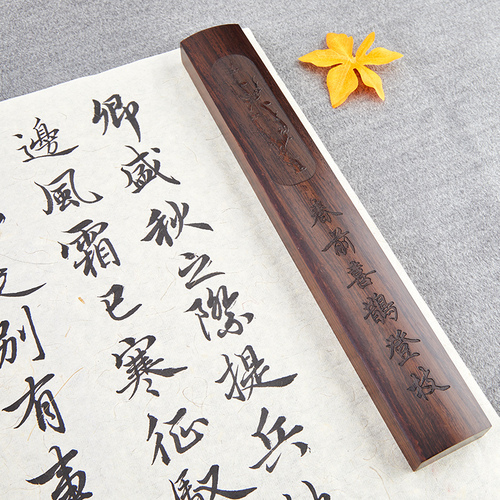 春前喜鵲登枝
卿盛秋之際提兵
邊風霜已寒征馭
別有事